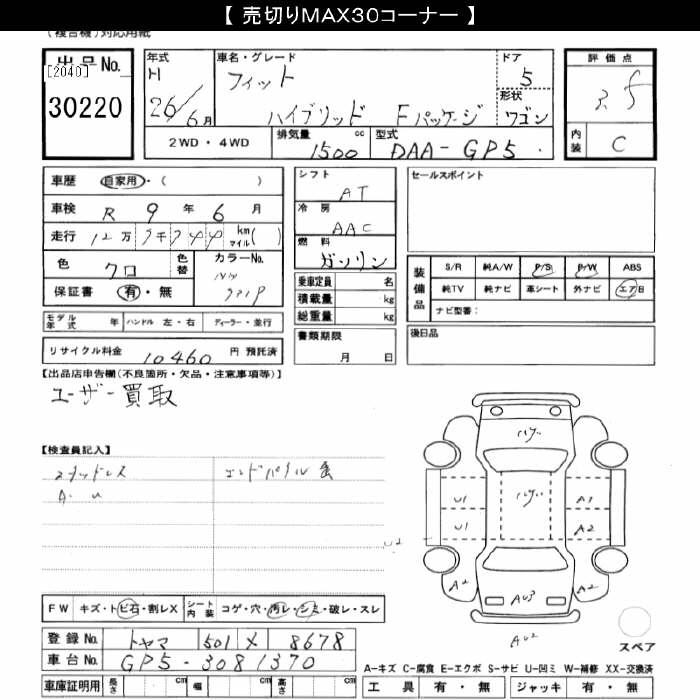 【 売切りMAX30コーナー 】
(複合機)対応用紙
出品No.
[2040]
30220
年式
H
26/6月
車名・グレード
フィット
ハイブリッド Fパッケージ
ドア
5
形状
ワゴン
評価点
3.5
内装
C
2WD・4WD
排気量
1500 cc
型式
DAA-GP5
車歴
自家用・( )
車検
R 9 年 6 月
走行
12万 km マイル( )
色
クロ
色替
カラーNo.
保証書
有・無
モデル年式 年
ハンドル 左・右
ディーラー・並行
リサイクル料金
10460 円 預託済
シフト
AT
冷房
AAC
燃料
ガソリン
乗車定員 名
積載量 kg
総重量 kg
書類期限
月 日
セールスポイント
装備品
S/R 純A/W P/S P/W ABS
純TV 純ナビ 車シート 外ナビ エアB
ナビ型番:
後日品
【出品店申告欄(不良箇所・欠品・注意事項等)】
ユーザー買取
【検査員記入】
スタッドレス
エンドパネル
U1
U1
A1
A2
U2
A2
A2
AU3
AU2
スペア
FW キズ・トビ石・割レX
シート内装 コゲ・穴・汚レ・シミ・破レ・スレ
登録No. トヤマ 501 X 8678
車台No. GP5-3081370
車庫証明用 長さ cm 幅 cm 高さ cm
A-キズ C-腐食 E-エクボ S-サビ U-凹ミ W-補修 XX-交換済
工具 有・無
ジャッキ 有・無